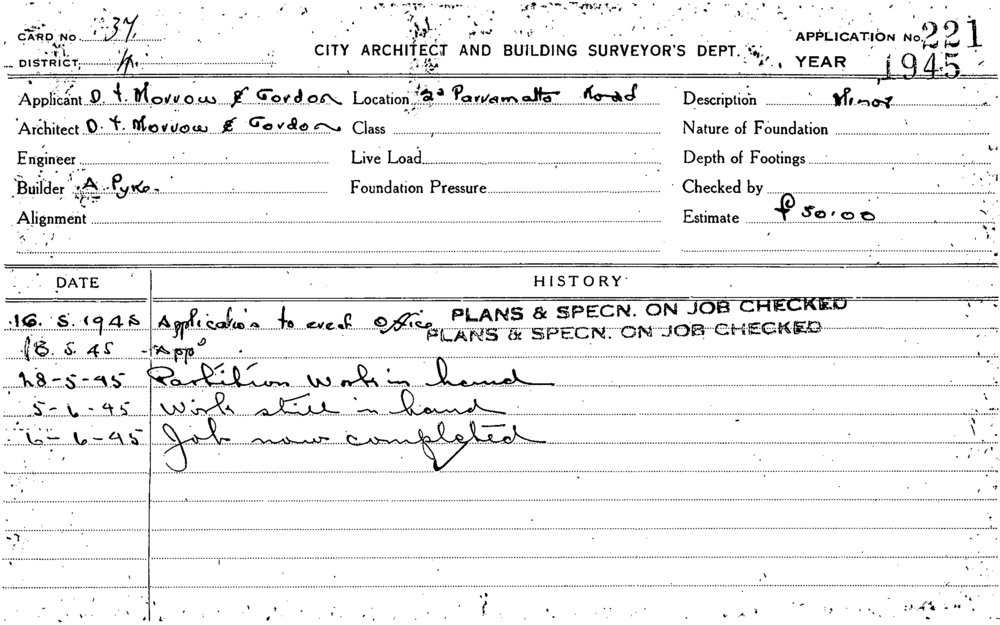 CARD NO. 37.
APPLICATION No. 221
DISTRICT
CITY ARCHITECT AND BUILDING SURVEYOR'S DEPT.
YEAR 1945
Applicant D. T. Morrow & Gordon Location 22 Parramatta Road Description Minor
Architect D. T. Morrow & Gordon Class Nature of Foundation
Engineer Live Load Depth of Footings
Builder A Pyke. Foundation Pressure Checked by
Alignment Estimate £ 50.00
DATE HISTORY
16. 5. 1945 Application to erect office PLANS & SPECN. ON JOB CHECKED
PLANS & SPECN. ON JOB CHECKED
18. 5. 45 App'd
28-5-45 Partition work in hand
5-6-45 Work still in hand
6-6-45 Job now completed